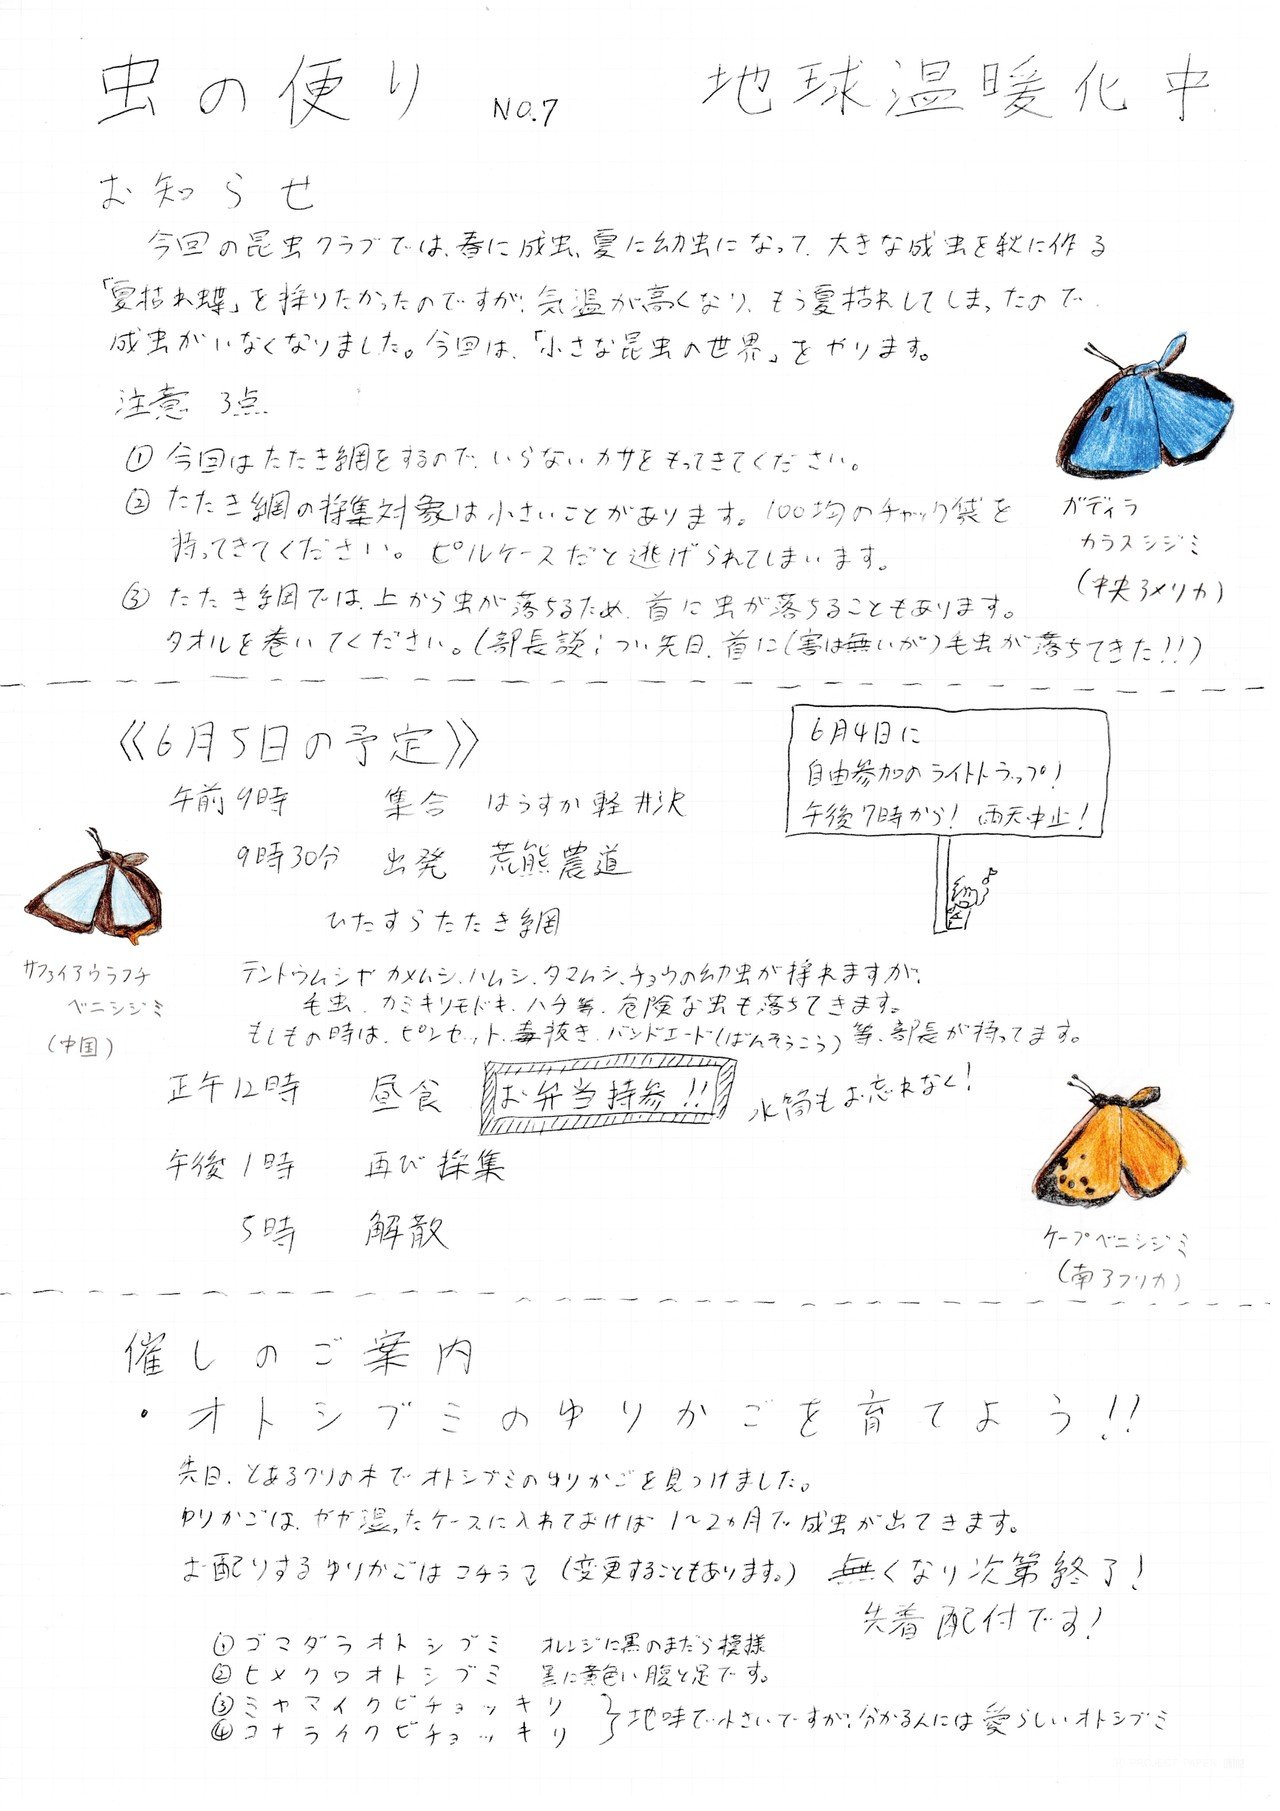 虫の便り NO.7 地球温暖化中
お知らせ
今回の昆虫クラブでは、春に成虫、夏に幼虫になって、大きな成虫を秋に作る
「夏枯れ蝶」を採りたかったのですが、気温が高くなり、もう夏枯れしてしまったので、
成虫がいなくなりました。今回は、「小さな昆虫の世界」をやります。
注意 3点
① 今回はたたき網をするので、いらないカサをもってきてください。
② たたき網の採集対象は小さいことがあります。100均のチャック袋を
持ってきてください。ピルケースだと逃げられてしまいます。
③ たたき網では、上から虫が落ちるため、首に虫が落ちることもあります。
タオルを巻いてください。(部長談;つい先日、首に(害は無いが)毛虫が落ちてきた!!)
ガディラ
カラスシジミ
(中央アメリカ)
《6月5日の予定》
6月4日に
自由参加のライトトラップ!
午後7時から! 雨天中止!
午前9時 集合 はうすか軽井沢
9時30分 出発 荒熊農道
ひたすらたたき網
テントウムシやカメムシ、ハムシ、タマムシ、チョウの幼虫が採れますが、
毛虫、カミキリモドキ、ハチ等、危険な虫も落ちてきます。
もしもの時は、ピンセット、毒抜き、バンドエード(ばんそうこう)等、部長が持ってます。
サファイアウラフチ
ベニシジミ
(中国)
正午12時 昼食 お弁当持参!! 水筒もお忘れなく!
午後1時 再び採集
5時 解散
ケープベニシジミ
(南アフリカ)
催しのご案内
・オトシブミのゆりかごを育てよう!!
先日、とあるクリの木でオトシブミのゆりかごを見つけました。
ゆりかごは、やや湿ったケースに入れておけば1〜2ヵ月で成虫が出てきます。
お配りするゆりかごはコチラ↴(変更することもあります。) 無くなり次第終了!
先着配付です!
①ゴマダラオトシブミ オレンジに黒のまだら模様
②ヒメクロオトシブミ 黒に黄色い腹と足です。
③ミヤマイクビチョッキリ
④コナライクビチョッキリ
}地味で小さいですが、分かる人には愛らしいオトシブミ